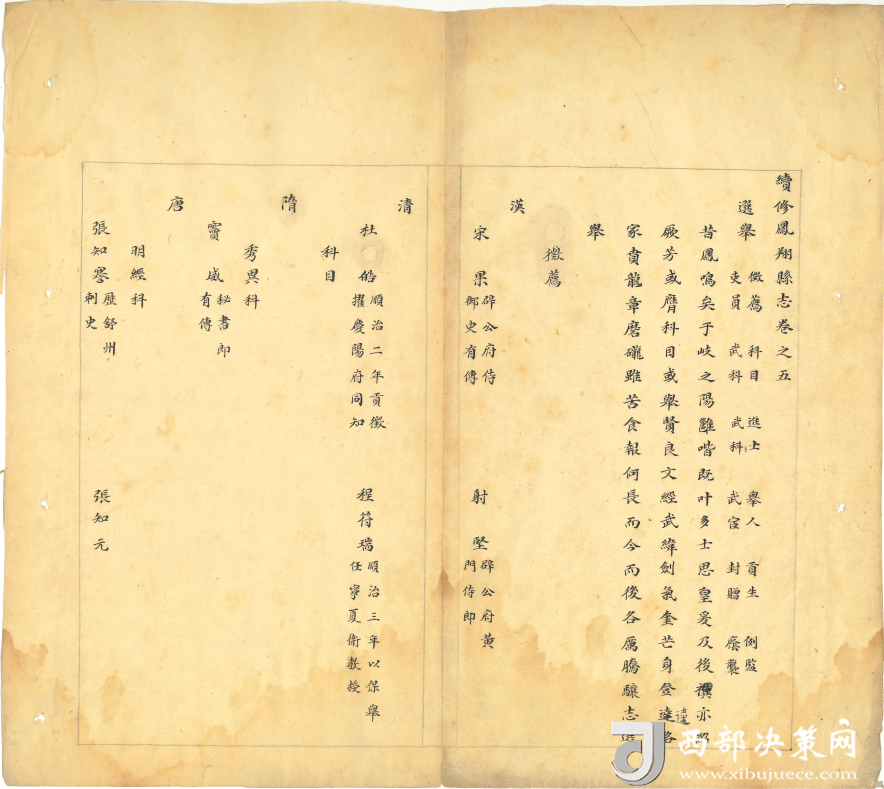 續修鳳翔縣志卷之五
選舉 徵薦 科目 進士 舉人 貢生 例監
吏員 武科 武科 武宦 封贈 廕襲
昔鳳鳴矣于岐之陽雝喈既叶多士思皇爰及後禩亦
厥芳或膺科目或舉賢良文經武緯劍氣奎芒身登達
達
家賁龍章磨礲雖苦食報何長而今而後各厲騰驤志
舉
徵薦
漢
宋果 辟公府侍
御史有傳
射堅 辟公府黃
門侍郎
清
杜皓 順治二年貢徵
擢慶陽府同知
程符瑞 順治三年以保舉
任寧夏衛教授
科目
隋
秀異科
竇威 秘書郎
有傳
唐
明經科
張知謇 歷舒州
刺史
張知元
西部决策网
www.xibujuece.com